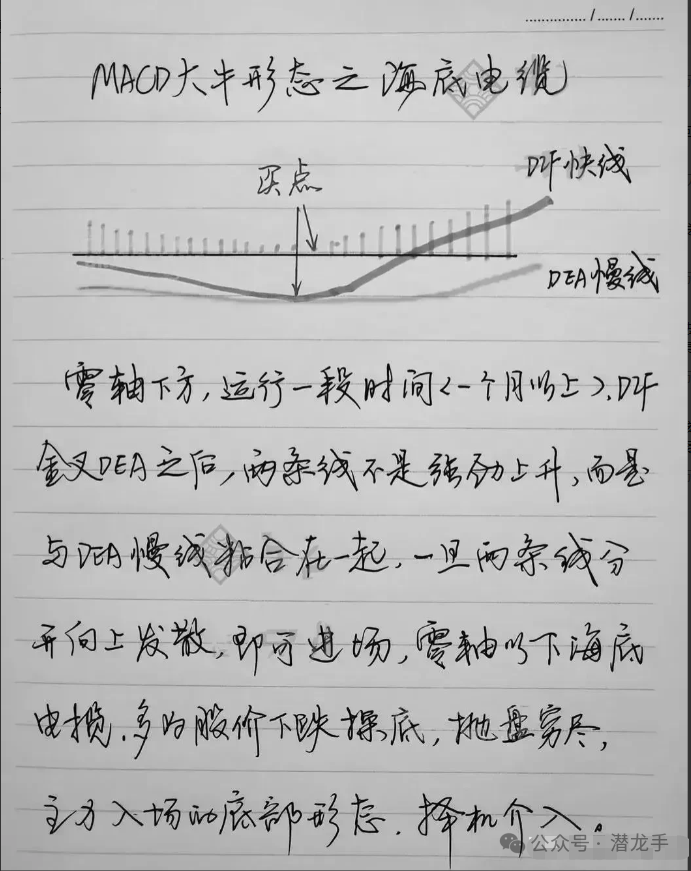 MACD大牛形态之海底电缆
买点
DIF快线
DEA慢线
零轴下方,运行一段时间<一个月以上>,DIF
金叉DEA之后,两条线不是强劲上升,而是
与DEA慢线粘合在一起,一旦两条线分
开向上发散,即可进场,零轴以下海底
电揽.多为股价下跌探底,抛盘穷尽,
主力入场的底部形态.择机介入。
公众号·潜龙手